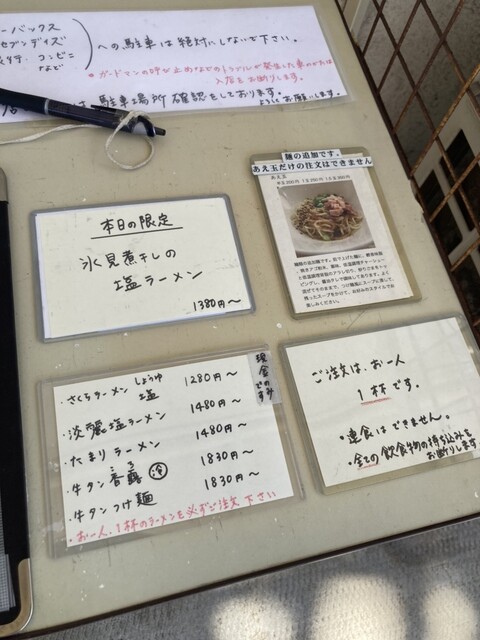 ーバックス
セブンデイズ
銀行、コンビニ
など
への駐車は絶対にしないで下さい。
・ガードマンの呼び止めなどのトラブルが発生した車の方は
入店をお断りします。
駐車場所確認をしております。
よろしくお願いします。
麺の追加です。
あえ玉だけの注文はできません
あえ玉
本日の限定
氷見煮干しの
塩ラーメン
1380円～
現金のみです
・さくらラーメン しょうゆ 塩 1280円～
・淡麗塩ラーメン 1480円～
・たまりラーメン 1480円～
・牛タン香露 冷 1830円～
・牛タンつけ麺 1830円～
・お一人、1杯のラーメンを必ずご注文下さい
ご注文は、お一人
1杯です。
・連食はできません。
・全ての飲食物の持ち込みを
お断りします